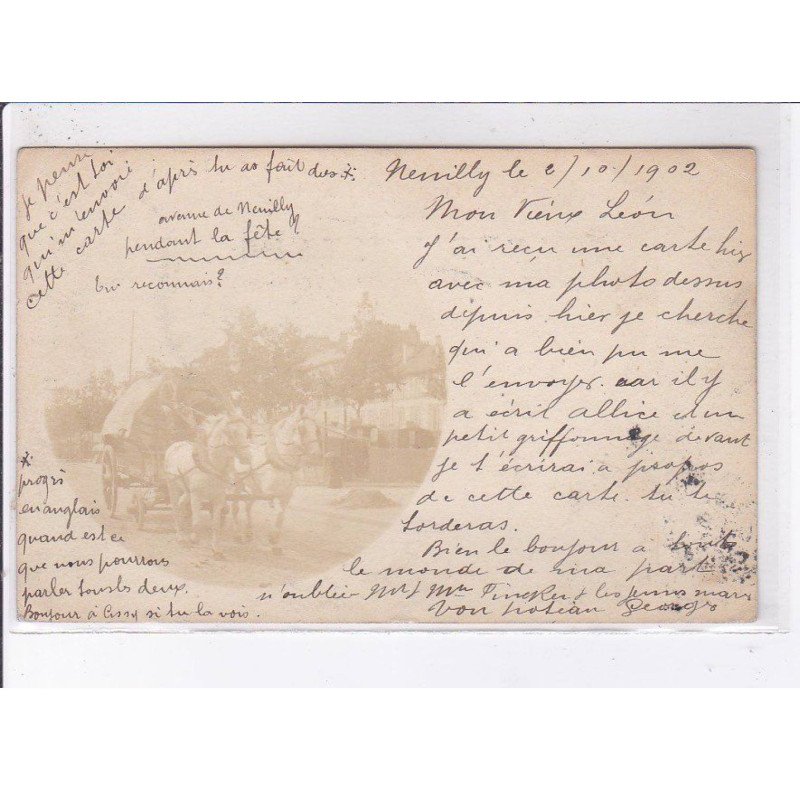 Neuilly le 2/10/1902
Mon Vieux Léon
J'ai reçu une carte hier
avec ma photo dessus
depuis hier je cherche
qui a bien pu me
l'envoyer. car il y
a écrit allice et un
petit griffonnage devant
je t'écrirai a propos
de cette carte. tu te
torderas.
Bien le bonjour a toute
le monde de ma part
n'oublie Mr & Mme Fincker & les
ton poteau Georges
je pense
que c'est toi
qui m'envoie
cette carte d'après tu as fait des *
avenue de Neuilly
pendant la fête
tu reconnais?
* progrès
en anglais
quand est ce
que nous pourrons
parler tous les deux.
Bonjour à Cissy si tu la vois.